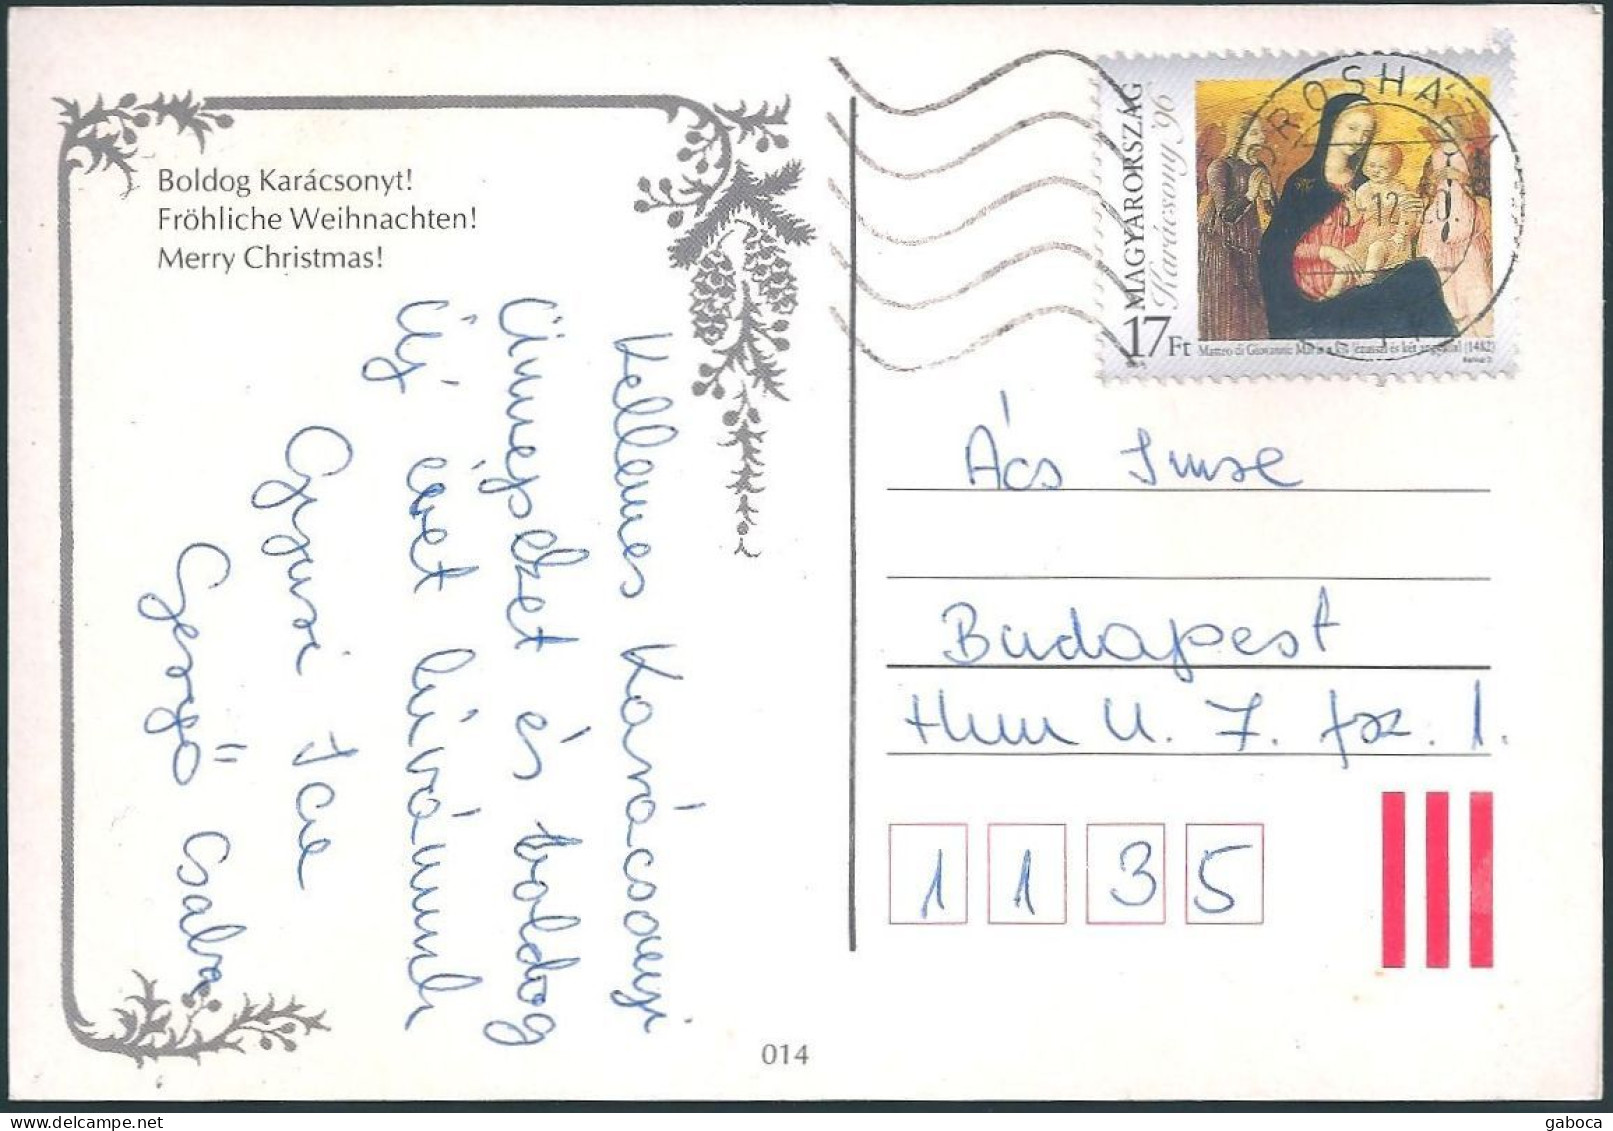 Boldog Karácsonyt!
Fröhliche Weihnachten!
Merry Christmas!
Kellemes Karácsonyi
Ünnepeket és boldog
Új évet kívánunk
Gyuri Ica
Gergő Csaba
014
MAGYARORSZÁG
Karácsony '96
17 Ft
Matteo di Giovanni: Mária a kis Jézussal és két angyallal (1482)
OROSHÁZA
96. 12. 20.
Ács Imre
Budapest
Hun u. 7. fsz. 1.
1 1 3 5
gaboca